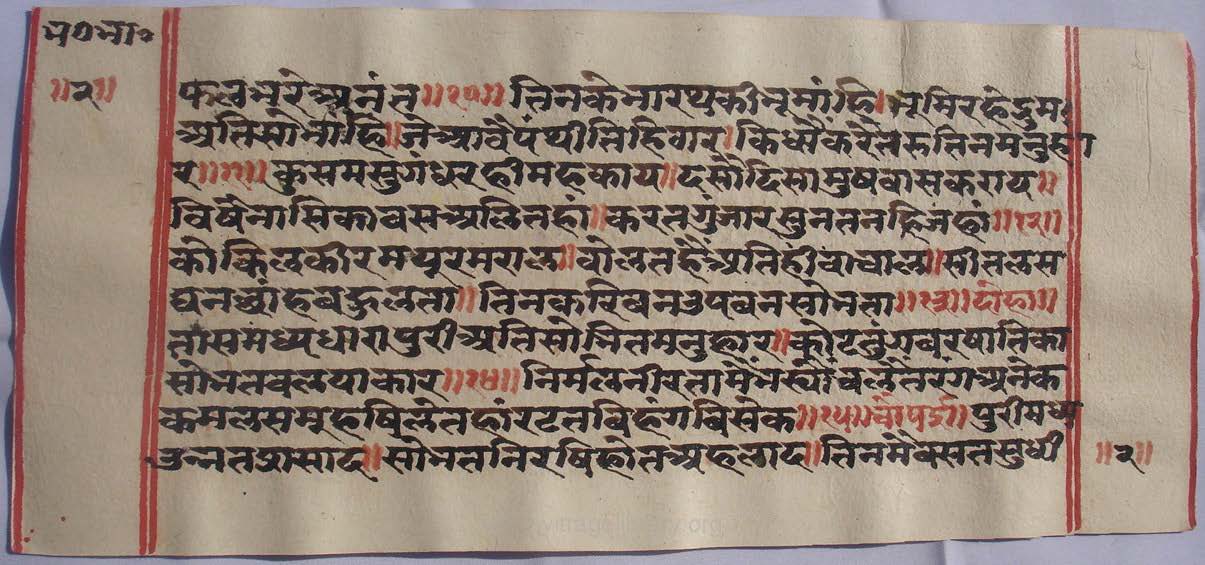 ॥२॥
फलभरे अनंत॥१०॥ तिनके भारथकी नूमांहि। भूमि रहे द्रुम
अति सोभांहि॥ जे आवै पंथी तिहि वार। किधौं करै तरु तिन मनुस्वा
र॥११॥ कुसमसुगंध रही महकाय॥ दसौं दिसा मुषवास कराय॥
विषै नासिका वस अलि तहां॥ करत गुंजार सुनत नहि जहां॥१२॥
कोकिल कीर मयुर मराल॥ वोलत हैं अतिही वाचाल॥ सीतल स
घन छांह वहुलता॥ तिन करि वन उपवन सोभता॥१३॥ दोहा॥
ता समध्य धारापुरी अति सोभित मनुहार॥ कोट तुंग वर षातिका
सोभत वलयाकार॥१४॥ निर्मल नीर तामै भस्यौ चलै तरंग अनेक
कमल समूह षिले तहां रटत विहंग विसेक॥१५॥ चौपई॥ पुरी मध्य
उन्नत प्रासाद॥ सोभत निरषि होत अहलाद॥ तिनमै वसत सुधी
॥२॥